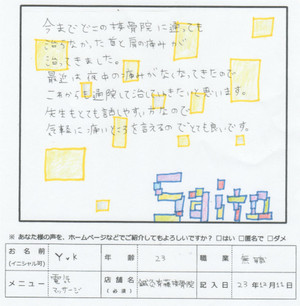 今までどこの接骨院に通っても
治らなかった首と肩の痛みが
治ってきました。
最近は夜中の痛みがなくなってきたので
これからも通院して治していきたいと思います。
先生もとても話しやすい方なので
気軽に痛いところを言えるのでとても良いです。
※ あなた様の声を、ホームページなどでご紹介してもよろしいですか? □はい □匿名で □ダメ
お名前 (イニシャル可) Y.K 年齢 23 職業 無職
メニュー 電気 マッサージ 店舗名 (必須) 接骨院 23年12月12日